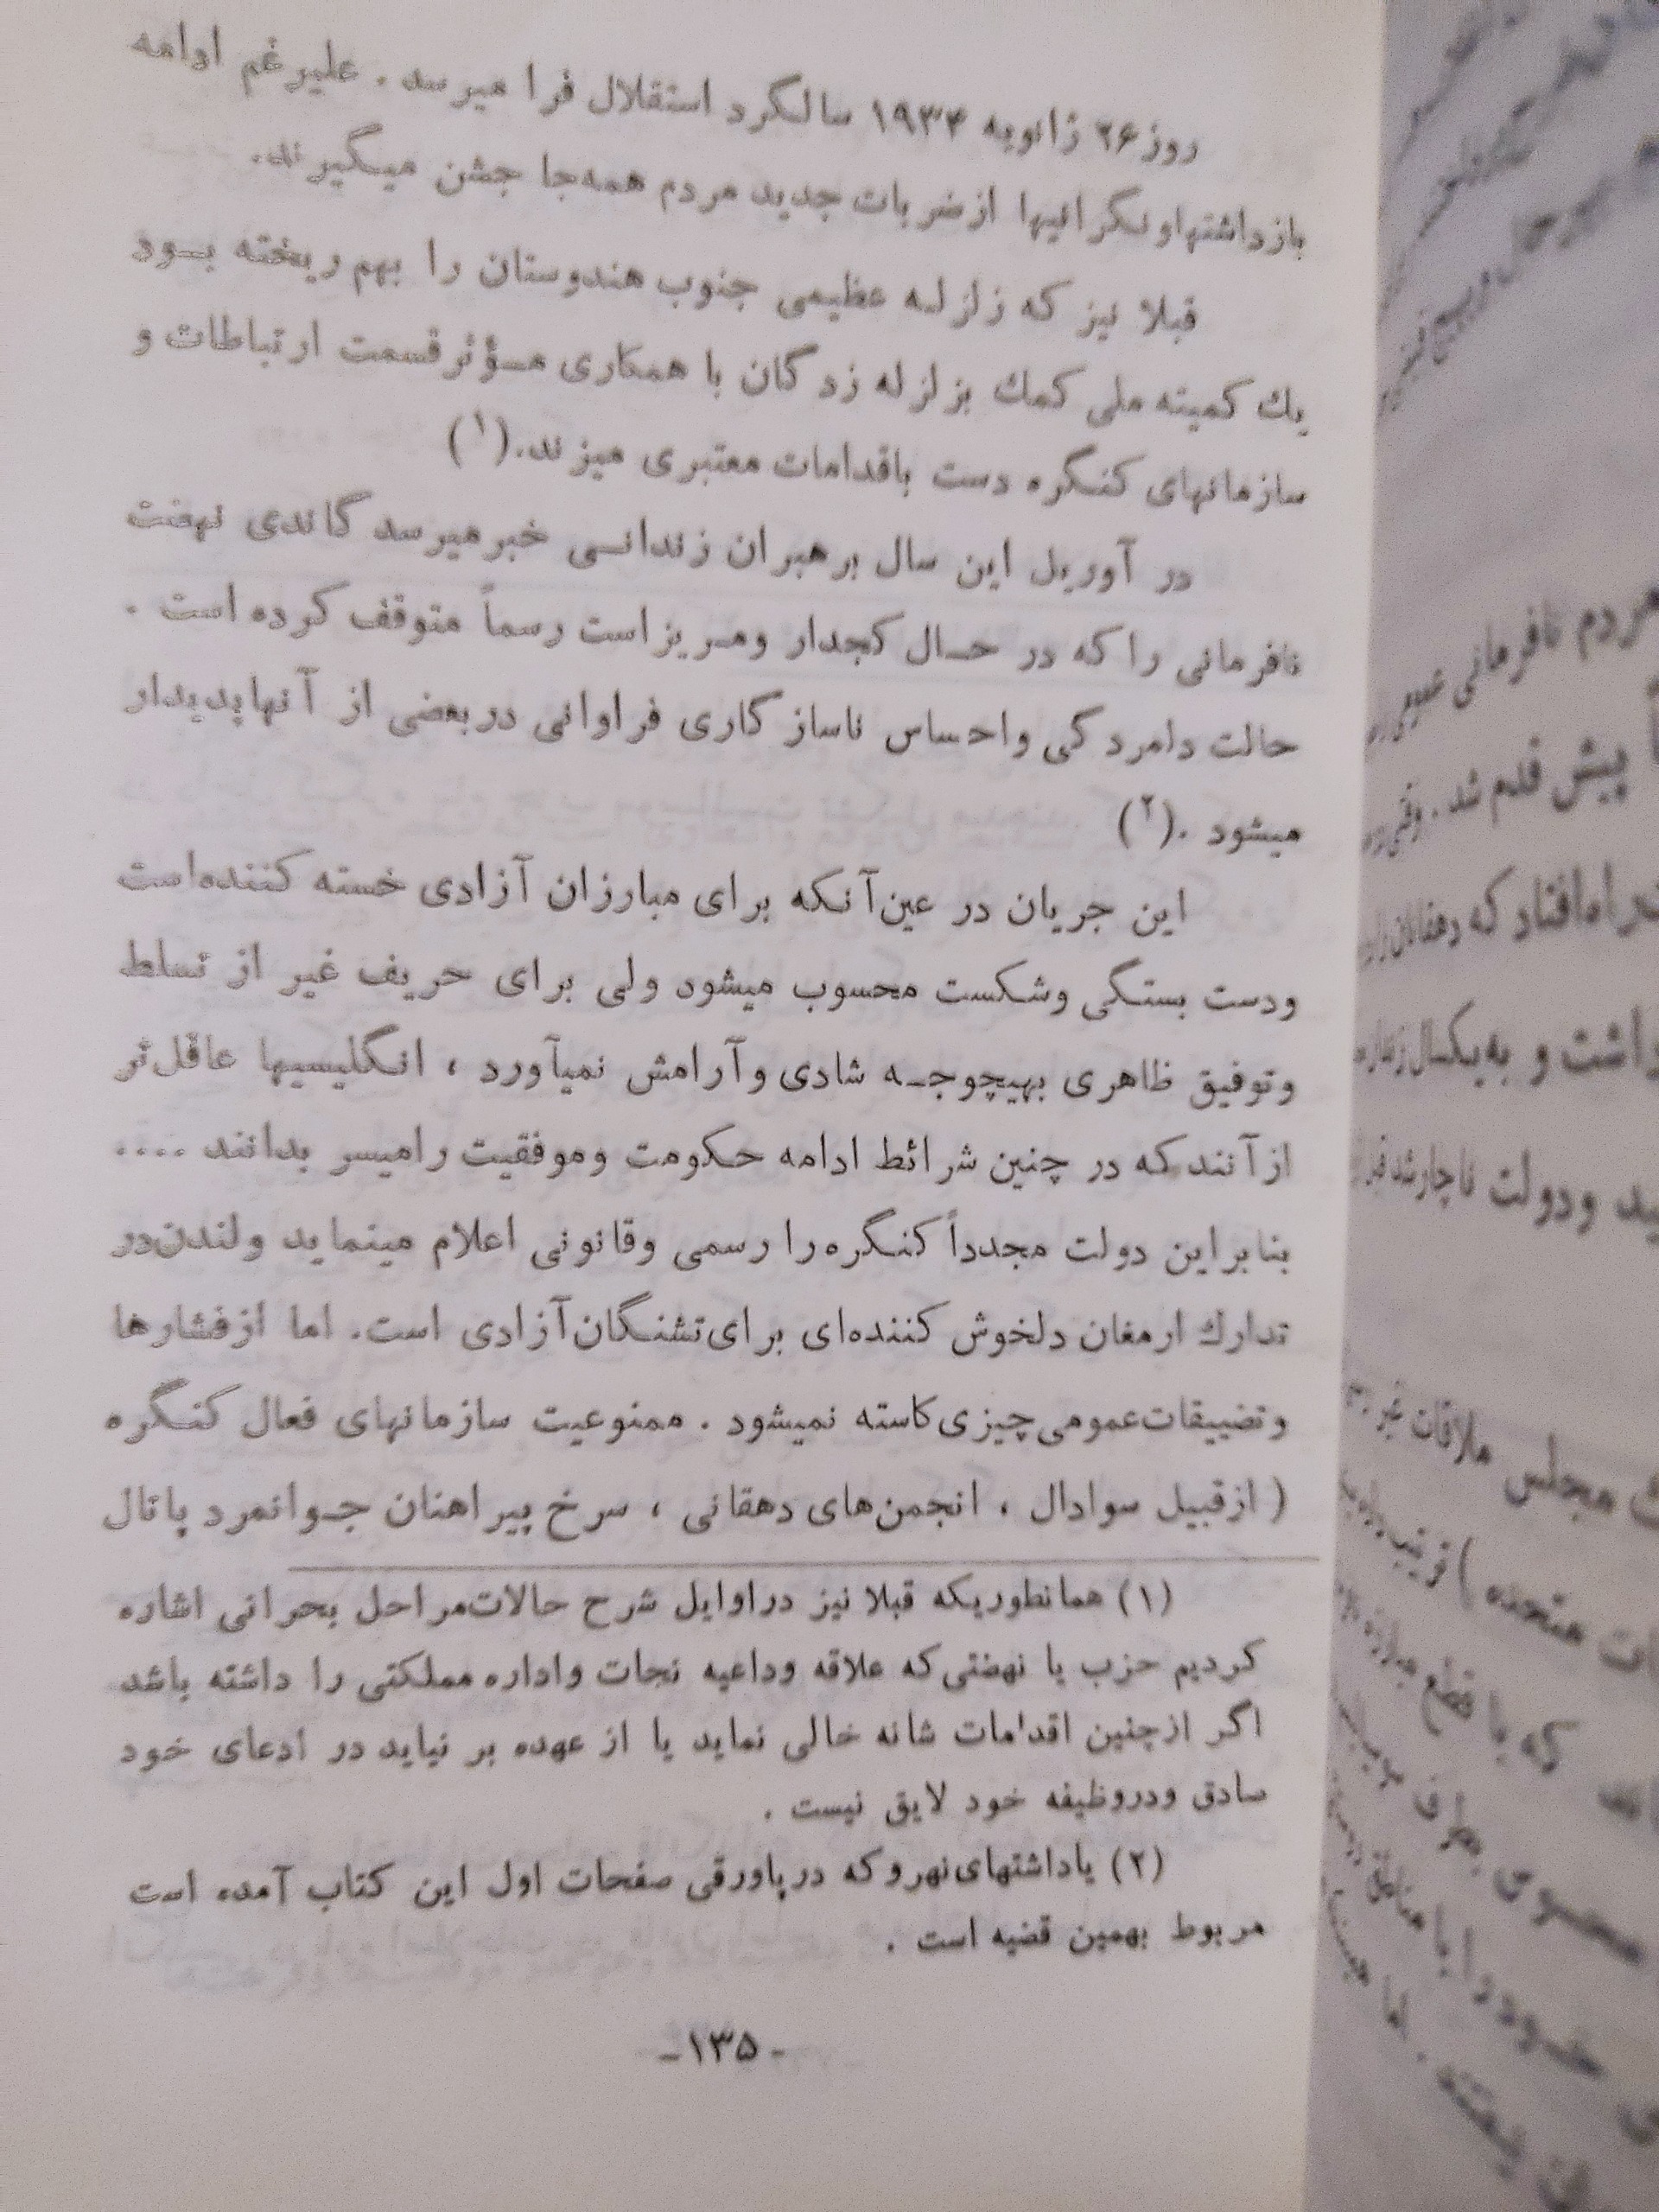 روز ۲۶ ژانویه ۱۹۳۴ سالگرد استقلال فرا میرسد . علیرغم ادامه
بازداشتها و نگرانیها از ضربات جدید مردم همه‌جا جشن میگیرند.
قبلا نیز که زلزله عظیمی جنوب هندوستان را بهم ریخته بود
یك کمیته ملی کمك بزلزله زدگان با همکاری مؤثر قسمت ارتباطات و
سازمانهای کنگره دست باقدامات معتبری میزند.(۱)
در آوریل این سال برهبران زندانی خبر میرسد گاندی نهضت
نافرمانی را که در حال کجدار و مریز است رسماً متوقف کرده است .
حالت دلمردگی و احساس ناسازگاری فراوانی در بعضی از آنها پدیدار
میشود .(۲)
این جریان در عین‌آنکه برای مبارزان آزادی خسته کننده‌است
و دست بستگی و شکست محسوب میشود ولی برای حریف غیر از تسلط
و توفیق ظاهری بهیچوجه شادی و آرامش نمیآورد ، انگلیسیها عاقل‌تر
از آنند که در چنین شرائط ادامه حکومت و موفقیت را میسر بدانند ....
بنابر این دولت مجدداً کنگره را رسمی و قانونی اعلام مینماید و لندن در
تدارك ارمغان دلخوش کننده‌ای برای تشنگان آزادی است. اما از فشارها
و تضییقات عمومی چیزی کاسته نمیشود . ممنوعیت سازمانهای فعال کنگره
( از قبیل سوادال ، انجمن‌های دهقانی ، سرخ پیراهنان جوانمرد پاتال
(۱) همانطوریکه قبلا نیز در اوایل شرح حالات مراحل بحرانی اشاره
کردیم حزب یا نهضتی که علاقه و داعیه نجات و اداره مملکتی را داشته باشد
اگر از چنین اقدامات شانه خالی نماید یا از عهده بر نیاید در ادعای خود
صادق و در وظیفه خود لایق نیست .
(۲) یاداشتهای نهرو که در پاورقی صفحات اول این کتاب آمده است
مربوط بهمین قضیه است .
-۱۳۵-
مردم نافرمانی
پیش قدم شد .
که دهقانان
داشت و به یکسال
ودولت ناچار شد
مجلس ملاقات
متحده )
که با قطع مبارزه
خود را با
اما